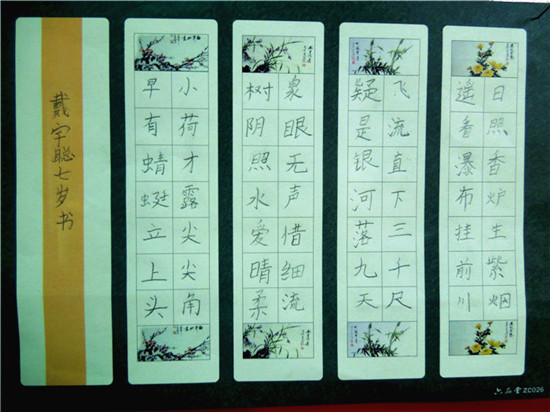 日照香炉生紫烟
遥看瀑布挂前川
飞流直下三千尺
疑是银河落九天
泉眼无声惜细流
树阴照水爱晴柔
小荷才露尖尖角
早有蜻蜓立上头
戴宇聪七岁书
六品堂 ZC026